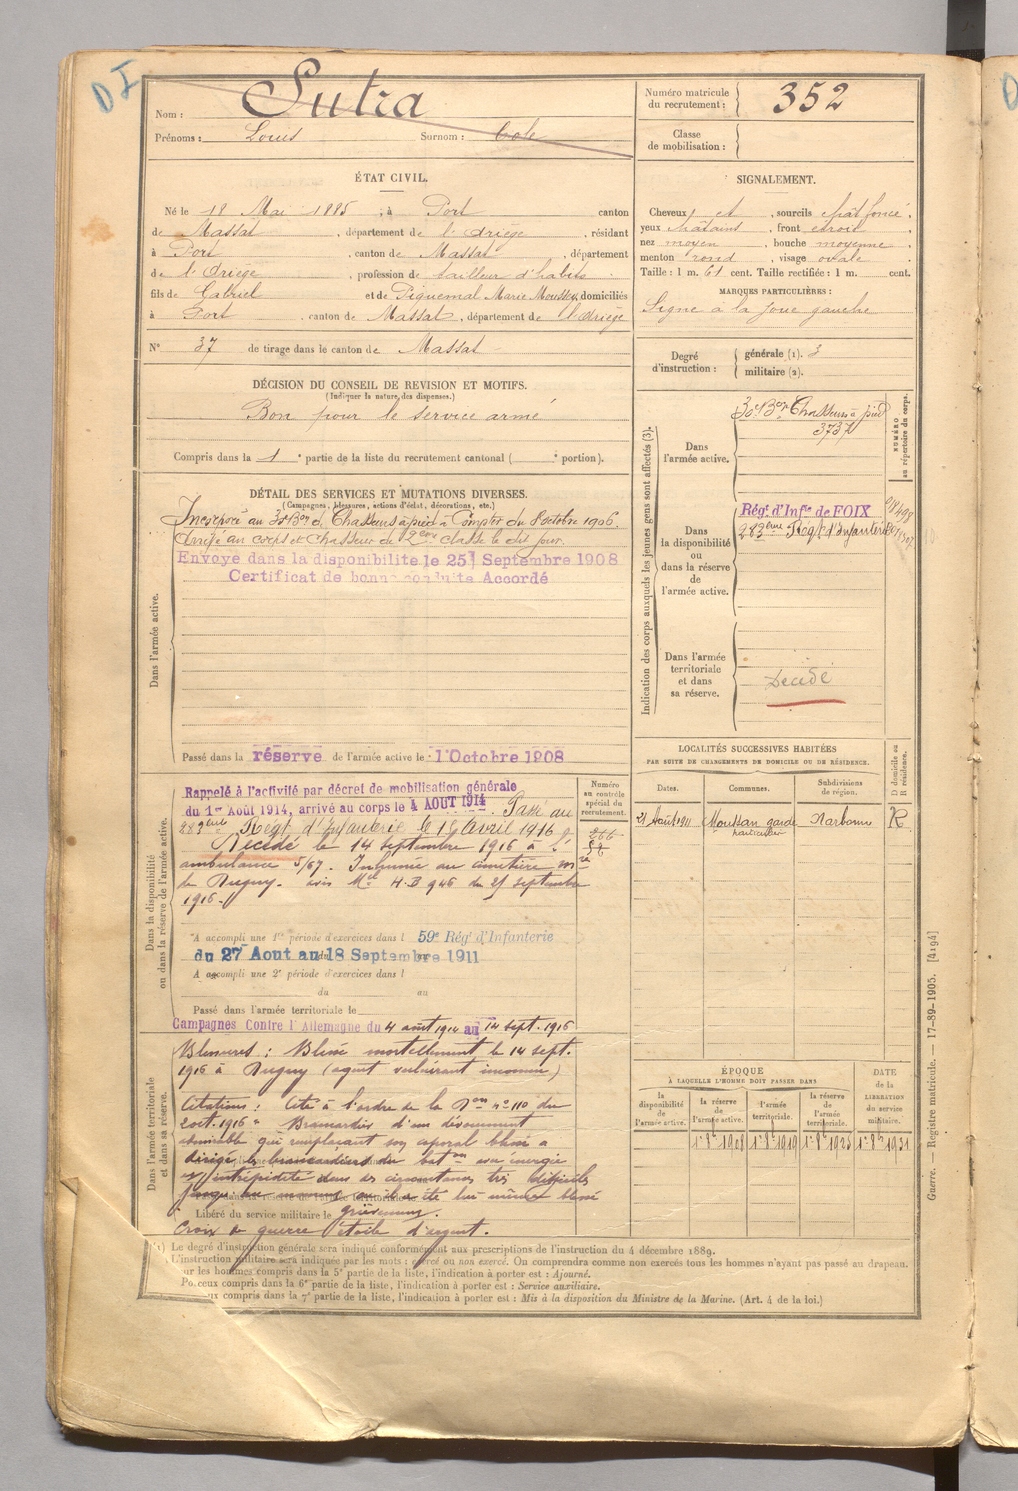 DI
Nom : Sutra
Prénoms : Louis Surnom : Cole
Numéro matricule du recrutement : 352
Classe de mobilisation :
ÉTAT CIVIL.
Né le 18 Mai 1885, à Port canton
de Massat, département de l'Ariège, résidant
à Port, canton de Massat, département
de l'Ariège, profession de tailleur d'habits
fils de Gabriel et de Piquemal Marie, domiciliés
à Port, canton de Massat, département de l'Ariège
N° 37 de tirage dans le canton de Massat
DÉCISION DU CONSEIL DE REVISION ET MOTIFS.
(Indiquer la nature des dispenses.)
Bon pour le service armé
Compris dans la 1e partie de la liste du recrutement cantonal ( e portion).
SIGNALEMENT.
Cheveux et, sourcils chât foncé.
yeux châtains, front étroit,
nez moyen, bouche moyenne
menton rond, visage ovale
Taille : 1 m. 61 cent. Taille rectifiée : 1 m. cent.
MARQUES PARTICULIÈRES :
Signe à la joue gauche
Degré d'instruction : générale (1). 3
militaire (2).
DÉTAIL DES SERVICES ET MUTATIONS DIVERSES.
(Campagnes, blessures, actions d'éclat, décorations, etc.)
Dans l'armée active.
Incorporé au 30e Bon de Chasseurs à pied à Compter du 8 octobre 1906.
Arrivé au corps et Chasseur de 2ème classe le dit jour.
Envoyé dans la disponibilité le 25 Septembre 1908
Certificat de bonne conduite Accordé
Passé dans la réserve de l'armée active le 1 Octobre 1908
Indication des corps auxquels les jeunes gens sont affectés (3).
NUMÉRO au répertoire du corps.
Dans l'armée active.
30e Bon Chasseurs à pied
3737
Dans la disponibilité ou dans la réserve de l'armée active.
Rég. d'Inf.ie de FOIX
283ème Rég.t d'Infanterie
Dans l'armée territoriale et dans sa réserve.
Décédé
Dans la disponibilité ou dans la réserve de l'armée active.
Numéro au contrôle spécial du recrutement.
Rappelé à l'activité par décret de mobilisation générale
du 1er Août 1914, arrivé au corps le 4 AOUT 1914. Passé au
283ème Régt d'Infanterie le 16 Avril 1916
Décédé le 14 septembre 1916 à l'
ambulance 5/67. Inhumé au cimetière
de Dugny. avis Mel H.B 946 du 21 septembre
1916.
A accompli une 1re période d'exercices dans l 59e Rég. d'Infanterie
du 27 Aout au 18 Septembre 1911
A accompli une 2e période d'exercices dans l
du au
Passé dans l'armée territoriale le
Campagnes Contre l'Allemagne du 4 août 1914 au 14 sept. 1916
Dans l'armée territoriale et dans sa réserve.
Blessures : Blessé mortellement le 14 sept.
1916 à Dugny (agent vulnérant inconnu)
Citations : Cité à l'ordre de la Don n° 110 du
2 oct. 1916 " Brancardier d'un dévouement
admirable qui remplaçant son caporal blessé a
dirigé les brancardiers du baton avec énergie
et intrépidité dans des circonstances très difficiles
jusqu'au moment où il a été lui même blessé
Libéré du service militaire le grièvement.
Croix de guerre étoile d'argent.
LOCALITÉS SUCCESSIVES HABITÉES
PAR SUITE DE CHANGEMENTS DE DOMICILE OU DE RÉSIDENCE.
Dates. Communes. Subdivisions de région. D domicile ou R résidence.
21 Août 1911 Moussan garde particulier Narbonne R
ÉPOQUE
À LAQUELLE L'HOMME DOIT PASSER DANS
DATE de la LIBÉRATION du service militaire.
la disponibilité de l'armée active. la réserve de l'armée active. l'armée territoriale. la réserve de l'armée territoriale.
1er 8bre 1908 1er 8bre 1919 1er 8bre 1925 1er 8bre 1931
(1) Le degré d'instruction générale sera indiqué conformément aux prescriptions de l'instruction du 4 décembre 1889.
L'instruction militaire sera indiquée par les mots : exercé ou non exercé. On comprendra comme non exercés tous les hommes n'ayant pas passé au drapeau.
ur les hommes compris dans la 5e partie de la liste, l'indication à porter est : Ajourné.
Po ceux compris dans la 6e partie de la liste, l'indication à porter est : Service auxiliaire.
ux compris dans la 7e partie de la liste, l'indication à porter est : Mis à la disposition du Ministre de la Marine. (Art. 4 de la loi.)
Guerre. — Registre matricule. — 17-89-1905. [4194]